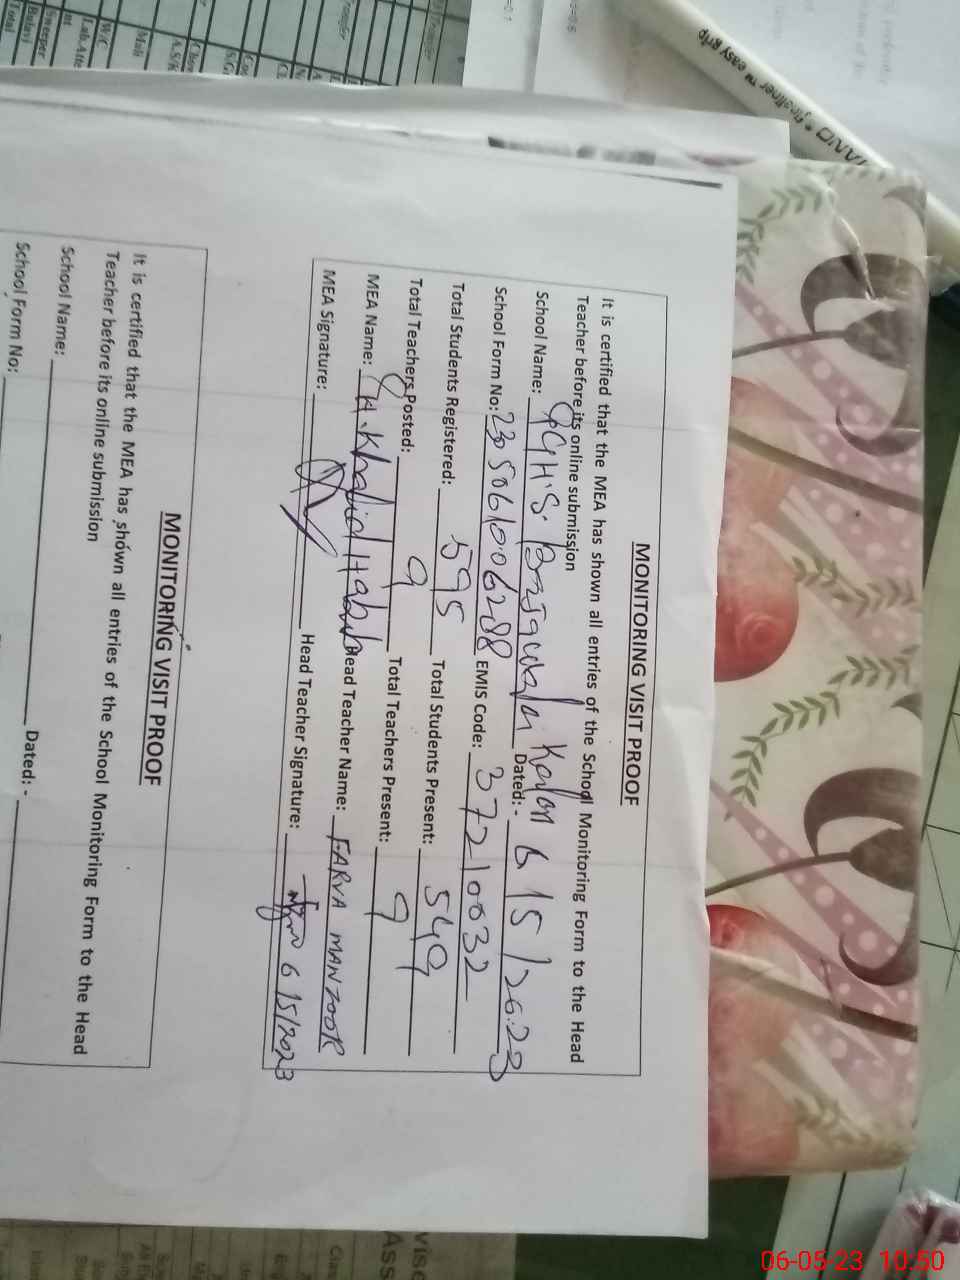 MONITORING VISIT PROOF
It is certified that the MEA has shown all entries of the School Monitoring Form to the Head
Teacher before its online submission
School Name: GGHS. Kalan Dated:- 6/5/2023
School Form No: 2305061006288 EMIS Code: 37210032
Total Students Registered: 595 Total Students Present: 549
Total Teachers Posted: 9 Total Teachers Present: 9
MEA Name: Khalid Habib Head Teacher Name: FARVA MANZOOR
MEA Signature: Head Teacher Signature: 6/5/2023
MONITORING VISIT PROOF
It is certified that the MEA has shown all entries of the School Monitoring Form to the Head
Teacher before its online submission
School Name: Dated:-
School Form No:
fineliner™ easy grip
Mali
W/C
Sweeper
Total
06-05-23 10:50